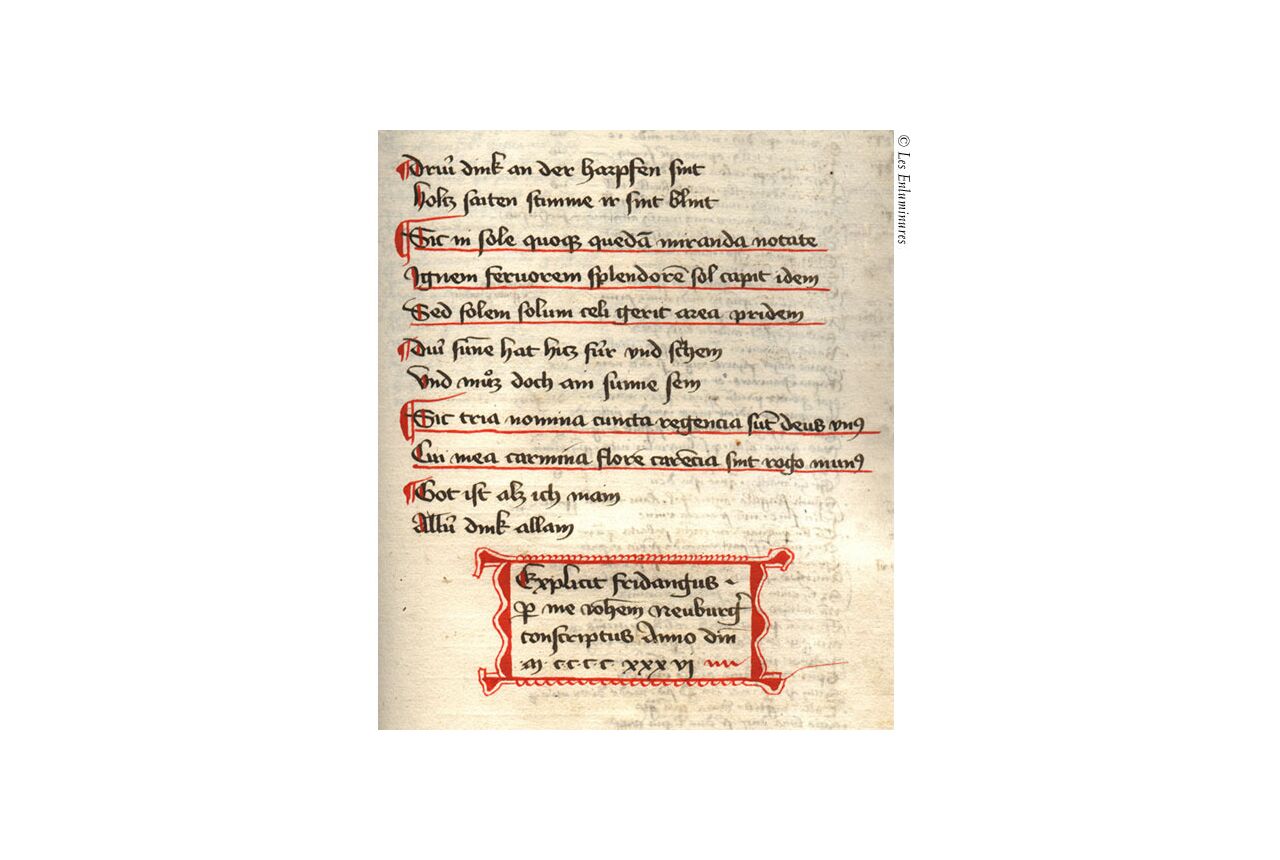 Driũ dink an der harpfen sint
holtz saiten stimme ir sint blint
Sic in sole quoqꝫ quedã miranda notate
Ignem feruorem splendorē sol capit idem
Sed solem solum celi gerit area pridem
Diũ sũne hat hitz fũr vnd schein
Vnd můz doch ain sunne sein
Sic tria nomina cuncta regencia sūt deus vnꝯ
Cui mea carmina flore carēcia sint rogo munꝯ
Got ist alz ich main
Allũ dink allain
Explicit fridangus
ꝑ me ioh̄em Neuburg̉
conscriptus Anno dn̄i
M cccc xxxvi
© Les Enluminures